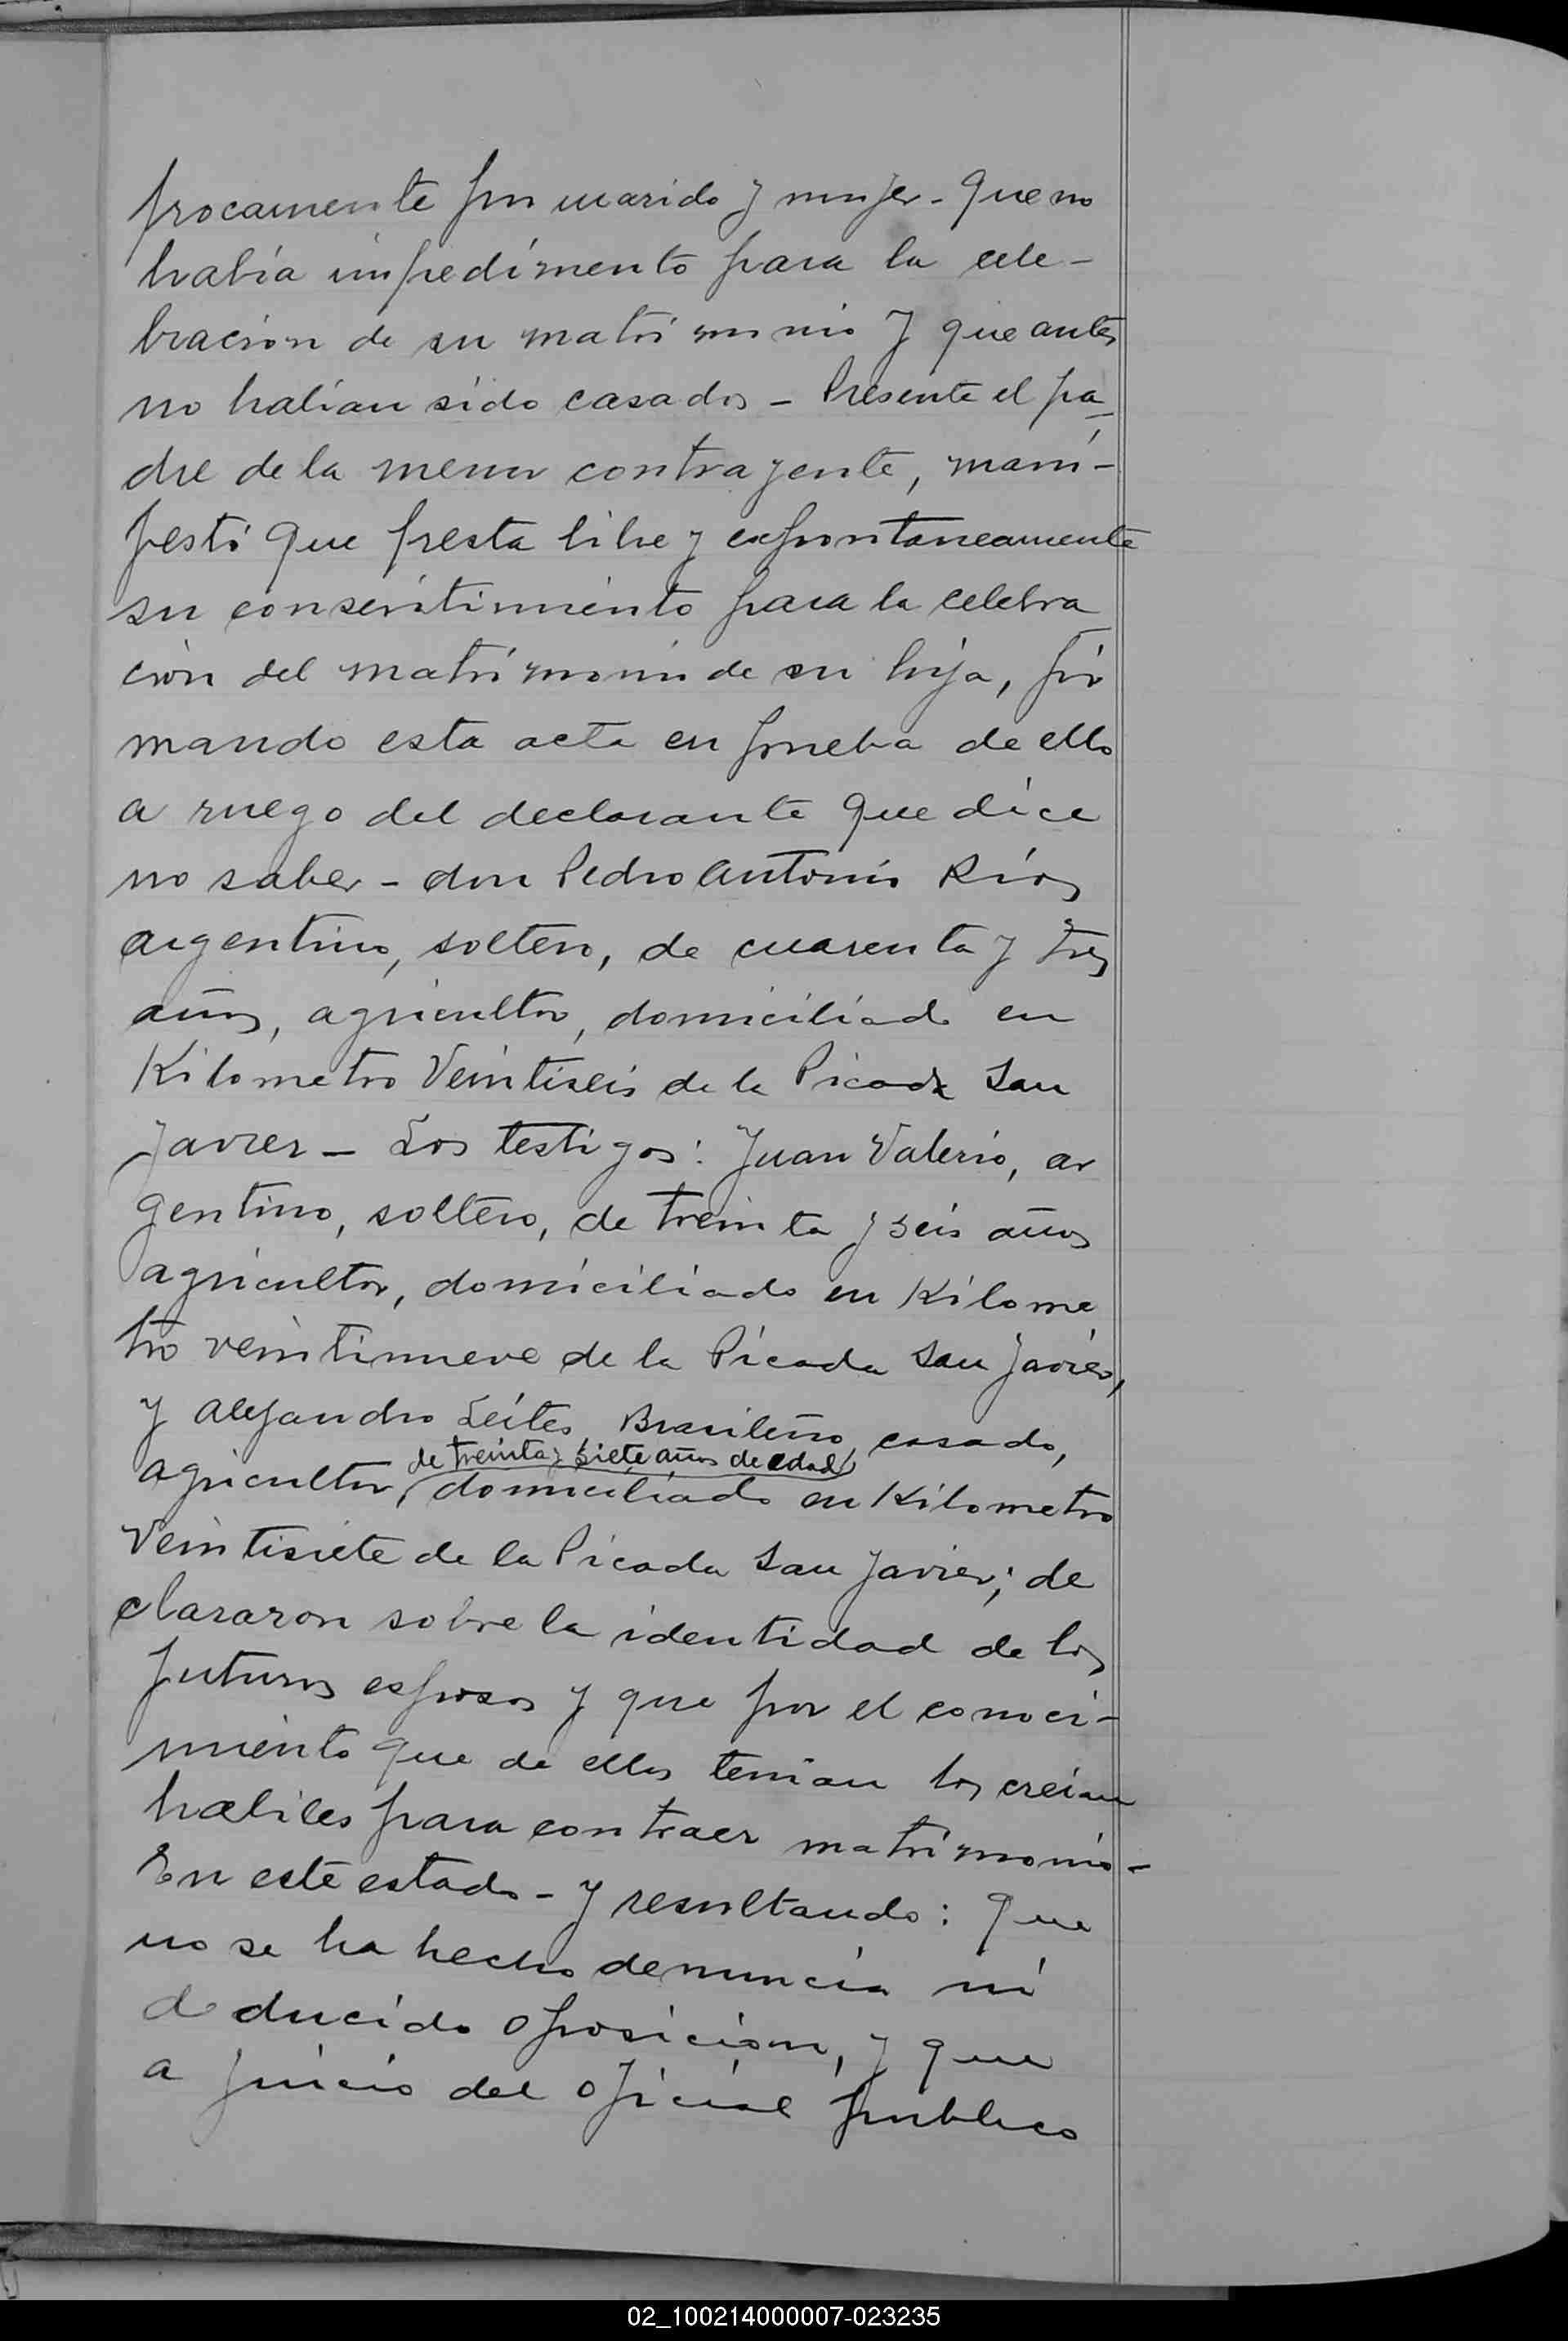 procamente por marido y mujer - Que no
habia impedimento para la cele-
bracion de su matrimonio y que antes
no habian sido casados - Presente el pa-
dre de la menor contrayente, mani-
festó que presta libre y exponta­neamente
su consentimiento para la celebra
ción del matrimonio de su hija, fir
mando esta acta en prueba de ello
a ruego del declarante que dice
no saber - don Pedro Antonio Ríos
argentino, soltero, de cuarenta y tres
años, agricultor, domiciliado en
Kilometro Veintiseis de la Picada San
Javier - Los testigos: Juan Valerio, ar
gentino, soltero, de treinta y seis años
agricultor, domiciliado en Kilome
tro veintinueve de la Picada San Javier,
y Alejandro Leites, Brasileño, casado,
de treinta y siete años de edad
agricultor, domiciliado en Kilometro
Veintisiete de la Picada San Javier; de
clararon sobre la identidad de los
futuros esposos y que por el conoci-
miento que de ellos tenian los creian
habiles para contraer matrimonio -
En este estado - y resultando: que
no se ha hecho denuncia ni
deducido oposicion, y que
a juicio del oficial publico
02_100214000007-023235